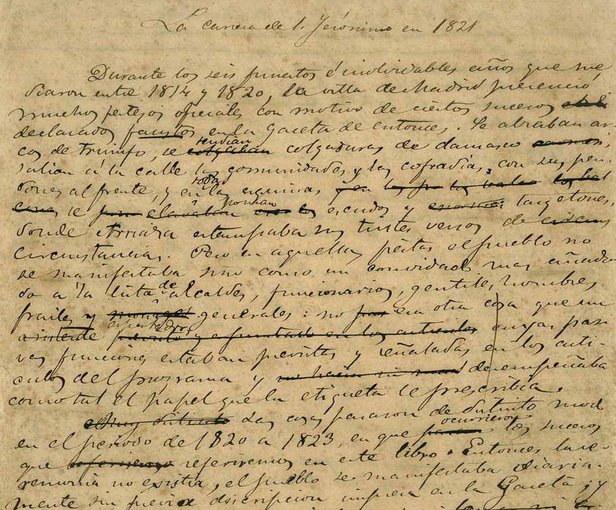 La carrera de S. Jerónimo en 1821
Durante los seis funestos é inolvidables años que me-
diaron entre 1814 y 1820, la villa de Madrid presenció
muchos festejos oficiales con motivo de ciertos sucesos
declarados faustos en la Gaceta de entonces. Se alzaban ar-
cos de triunfo, se tendian colgaduras de damasco
salian á la calle las comunidades y las cofradías con sus pen-
dones al frente, y en todas las esquinas
se ponian escudos y tarjetones,
donde el estampaba sus tristes versos de
circunstancias. Pero en aquellas fiestas el pueblo no
se manifestaba sino como un convidado mas, añadi-
do á la lista de alcaldes, funcionarios, gentiles-hombres
frailes y generales: no era otra cosa que un
espectador cuyas pasi-
vas funciones estaban previstas y señaladas en los artí-
culos del programa y desempeñaba
como tal el papel que la etiqueta le prescribia.
Las cosas pasaron de distinto modo
en el período de 1820 a 1823, en que ocurrieron los sucesos
que referiremos en este libro. Entonces la ce-
remonia no existia, el pueblo se manifestaba diaria-
mente sin previa inscripcion impresa en la Gaceta; y